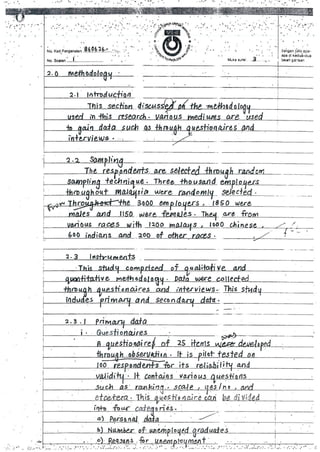 No. Kad Pengenalan:
No. Soalan: 1
Muka surat: 3
2.0 methodology
2.1 Introduction
This section discussed on the methodology
used in this research. Various mediums are used
to gain data such as through questionaires and
interviews.
2.2 Sampling
The respondents are selected through random
sampling technique. Three thousand employers
throughout Malaysia were randomly selected.
From Throughout the 3000 employers, 1850 were
males and 1150 were females. They are from
various races with 1200 malays, 1000 chinese,
600 indians and 200 of other races.
2.3 Instruments
This study comprised of qualitative and
quantitative methodology. Data were collected
through questionaires and interviews. This study
Includes primary and secondary data.
2.3.1 Primary data
i. Questionaires
A questionaires of 25 items were was developed
through observation. It is pilot tested on
100 respondents for its reliability and
validity. It contains various questions
such as ranking, scale, yes/no, and
etcetera. This questionaire can be divided
into four categories.
a) Personal data
b) Number of unemployed graduates
c) Reasons for unemployment